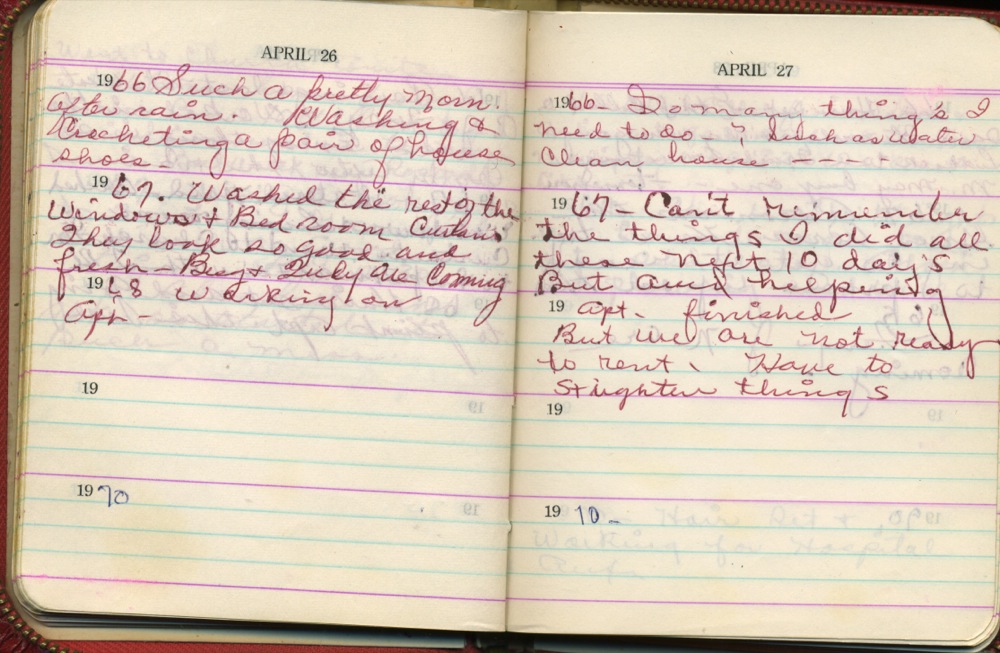 APRIL 26
1966 Such a pretty Morn.
after rain. Washing &
Crocheting a pair of house
shoes -
1967. Washed the rest of the
Windows & Bed room Curtains
They look so good and
fresh - & July are Coming
1968 Working on
Apr -
19
1970
APRIL 27
1966 - So many thing's I
need to do ; such as water
clean house - - - -
1967 - Can't remember
the things I did all
these next 10 day's
But am helping
19 apt. finished
But we are not ready
to rent. Have to
strighten things
19
1970 -